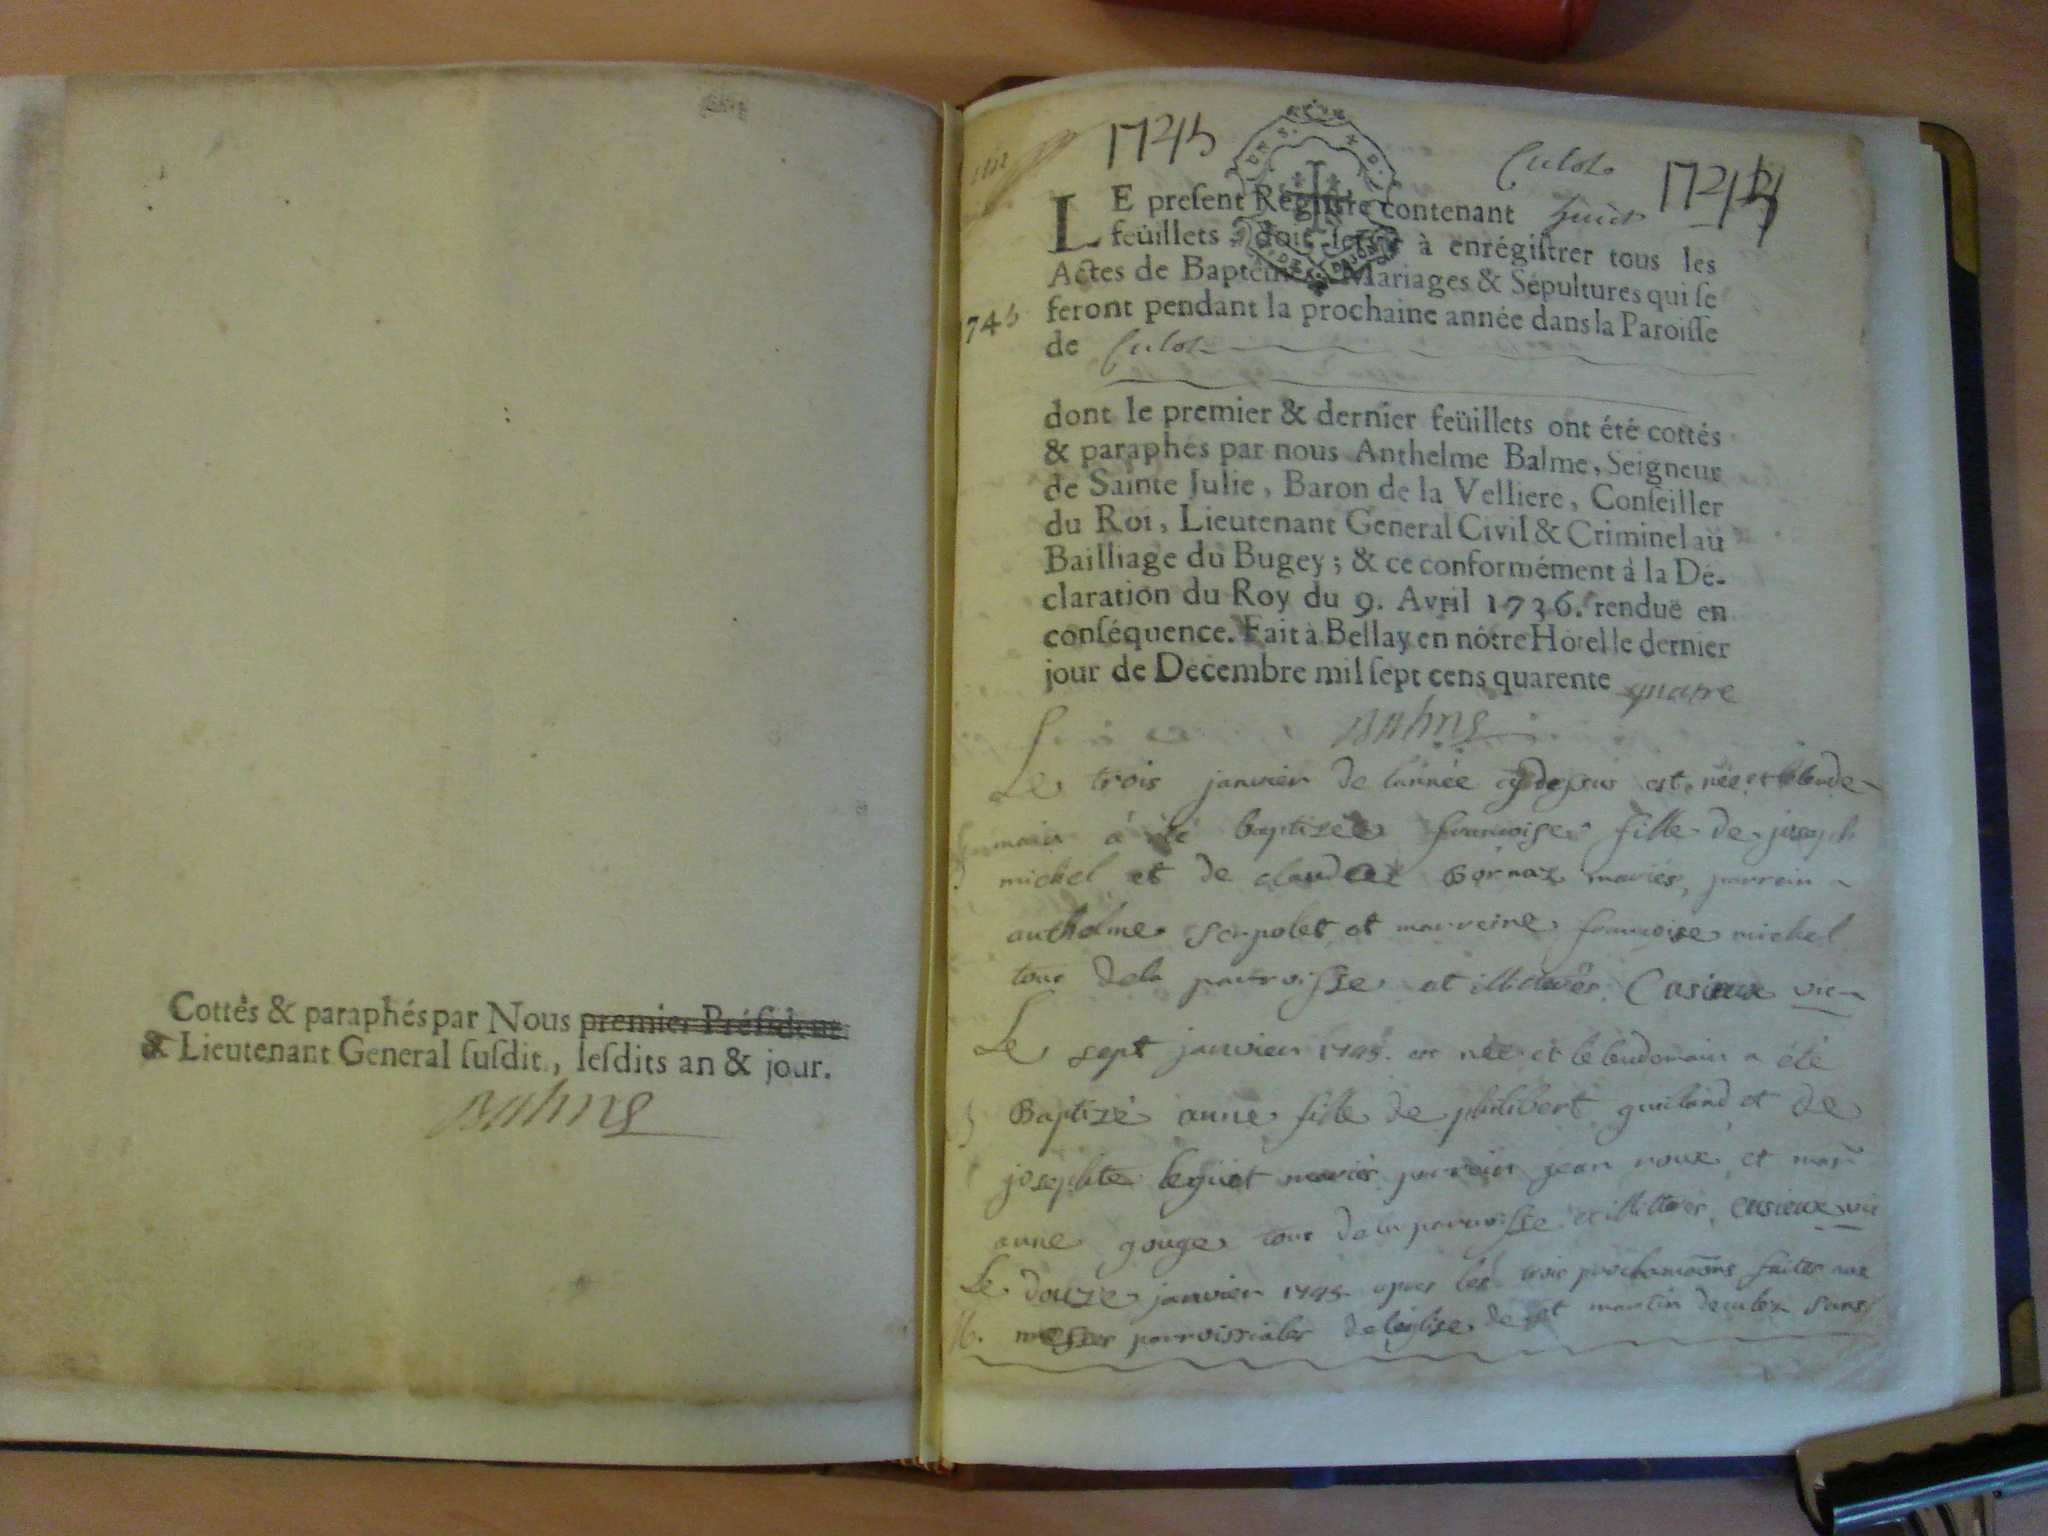 Cottés & paraphés par Nous premier Président
& Lieutenant General suſdit, leſdits an & jour.
Balme
1745
Culoz
1745
LE preſent Régiſtre contenant huict
feüillets doit ſervir à enrégiſtrer tous les
Actes de Baptémes, Mariages & Sépultures qui ſe
feront pendant la prochaine année dans la Paroiſſe
1745
de Culoz
dont le premier & dernier feüillets ont été cottés
& paraphés par nous Anthelme Balme, Seigneur
de Sainte Julie, Baron de la Velliere, Conſeiller
du Roi, Lieutenant General Civil & Criminel au
Bailliage du Bugey ; & ce conformément à la Dé-
claration du Roy du 9. Avril 1736. renduë en
conſéquence. Fait à Bellay en nôtre Hôtel le dernier
jour de Decembre mil ſept cens quarente quatre
Balme
Le trois janvier de l'année cydessus est née et le lende
main a été baptizée francoise fille de joseph
michel et de claudaz Bornaz mariés, parrein
anthelme serpolet et marreine francoise michel
tous dela parroisse et illiterés. Cusieux vic
Le sept janvier 1745. est née et le lendemain a été
Baptizé anne fille de philibert guilland et de
josephte beguet mariés parrein jean roux et marr
anne gouge tous dela parroisse et illitterés, Cusieux vic
Le douze janvier 1745 apres les trois proclamaons faites aux
M. messes parroissiales de leglise de st martin de culoz sans